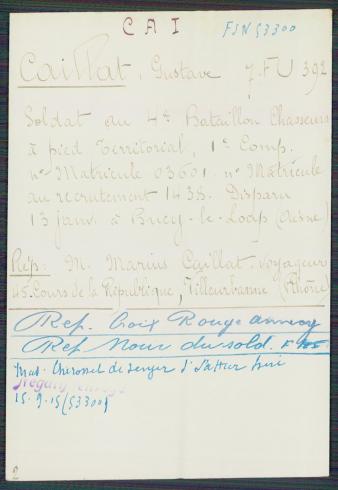 C A I FSN 53300
Caillat, Gustave 7. FU 392
Soldat au 4e Bataillon Chasseurs
à pied Territorial, 1e Comp.
no Matricule 03601. no Matricule
au recrutement 1438. Disparu
13 janv. à Bucy-le-Long (Aisne)
Rép: M. Marius Caillat, voyageur
45. Cours de la République, Villeurbanne (Rhône)
Ref. Croix Rouge annecy
Ref Nouv du sold.
Mad. de
Négatif envoyé
15.9.15 (53300)